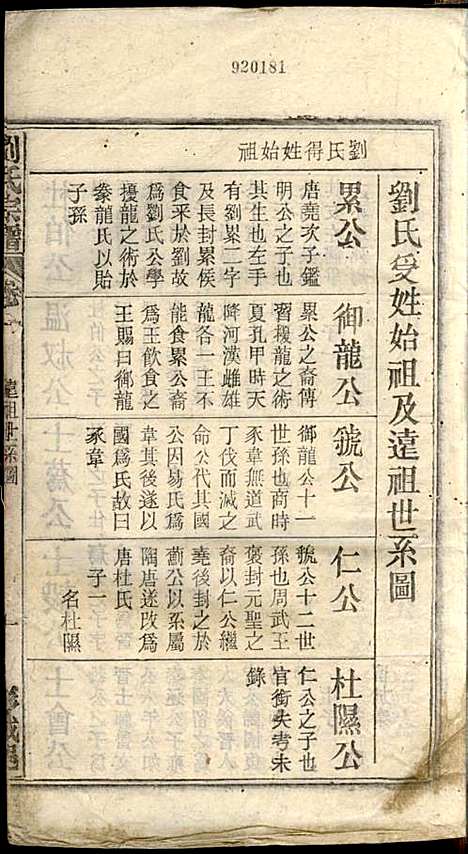 920181
劉氏得姓始祖
劉氏受姓始祖及遠祖世系圖
累公
唐堯次子鑑
明公之子也
其生也左手
有劉累二字
及長封累侯
食采於劉故
爲劉氏公學
擾龍之術於
豢龍氏以貽
子孫
御龍公
累公之裔傳
習擾龍之術
夏孔甲時天
降河漢雌雄
龍各一王不
能食累公裔
爲王飲食之
王賜曰御龍
虢公
御龍公十一
世孫也商時
豕韋無道武
丁伐而滅之
命公代其國
公因易氏爲
韋其後遂以
國爲氏故曰
豕韋
仁公
虢公十二世
孫也周武王
褒封元聖之
裔以仁公繼
堯後封之於
薊公以系屬
陶唐遂改爲
唐杜氏
子一
名杜隰
杜隰公
仁公之子也
官銜失考未
錄
劉氏宗譜
卷
遠祖世系圖
一